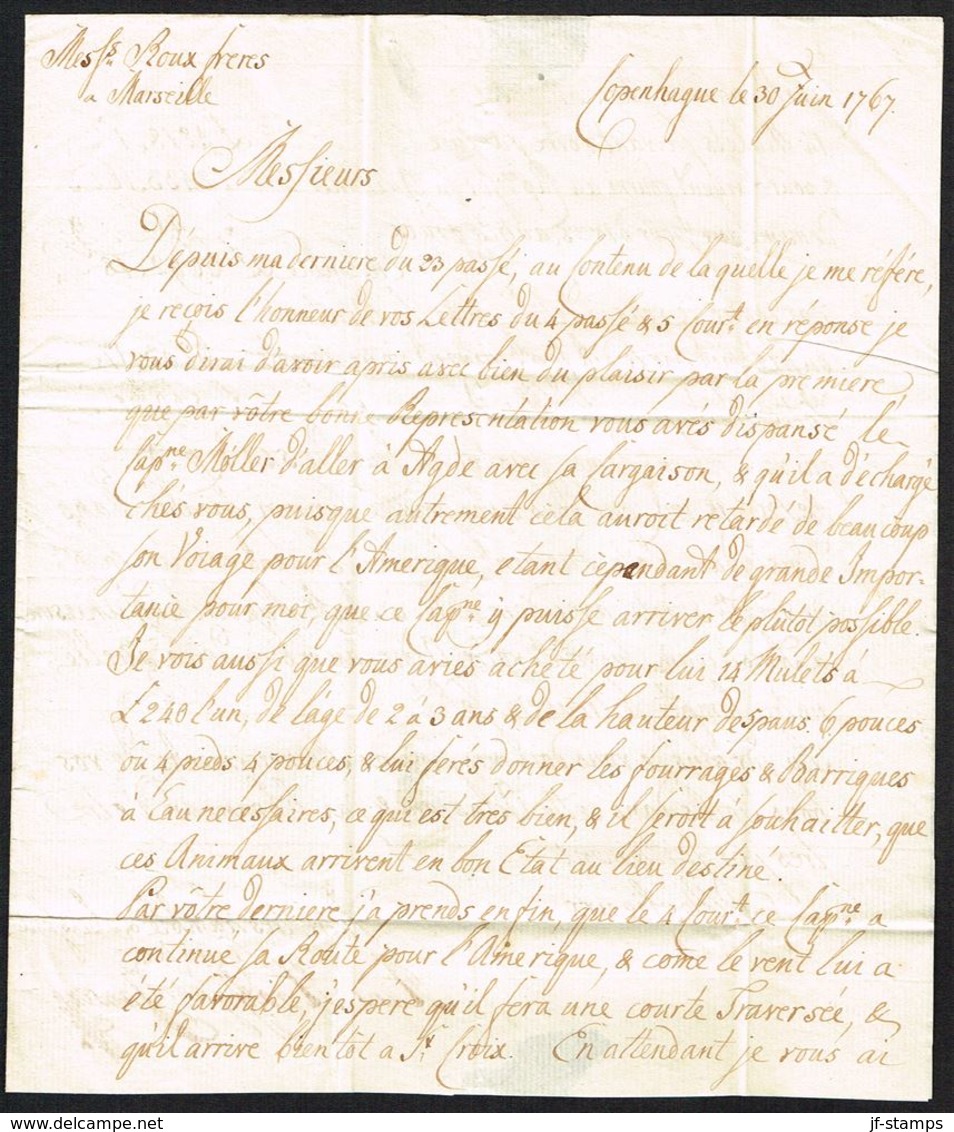 Messrs. Roux freres
a Marseille
Copenhague le 30 Juin 1767.
Messieurs
Dépuis ma derniere du 23 passé, au Contenu de laquelle je me référe,
je reçois l'honneur de vos Lettres du 4 passé & 5 Cour.t en réponse je
vous dirai d'avoir apris avec bien du plaisir par la premiere
que par vôtre bonne Representation vous avés dispansé le
Cap.ne Möller d'aller à Agde avec sa Cargaison, & qu'il a déchargé
chés vous, puisque autrement cela auroit retardé de beaucoup
son Voiage pour l'Amerique, etant cependant de grande Impor-
tance pour moi, que ce Cap.ne y puisse arriver le plûtot possible.
Je vois aussi que vous aviés acheté pour lui 14 Mulets à
£240 l'un, de l'age de 2 à 3 ans & de la hauteur de 5 paus. 6. pouces
où 4 pieds 4 pouces, & lui ferés donner les fourrages & Barriques
à Eau necessaires, ce qui est trés bien, & il seroit à souhaitter, que
ces Animaux arrivent en bon Etat au lieu destiné.
Par vôtre derniere j'aprends enfin, que le 4 Cour.t ce Cap.ne a
continue sa Route pour l'Amerique, & come le vent lui a
été favorable, j'espére qu'il fera une courte Traversée, &
qu'il arrive bientôt a S.x Croix. En attendant je vous ai
jf-stamps